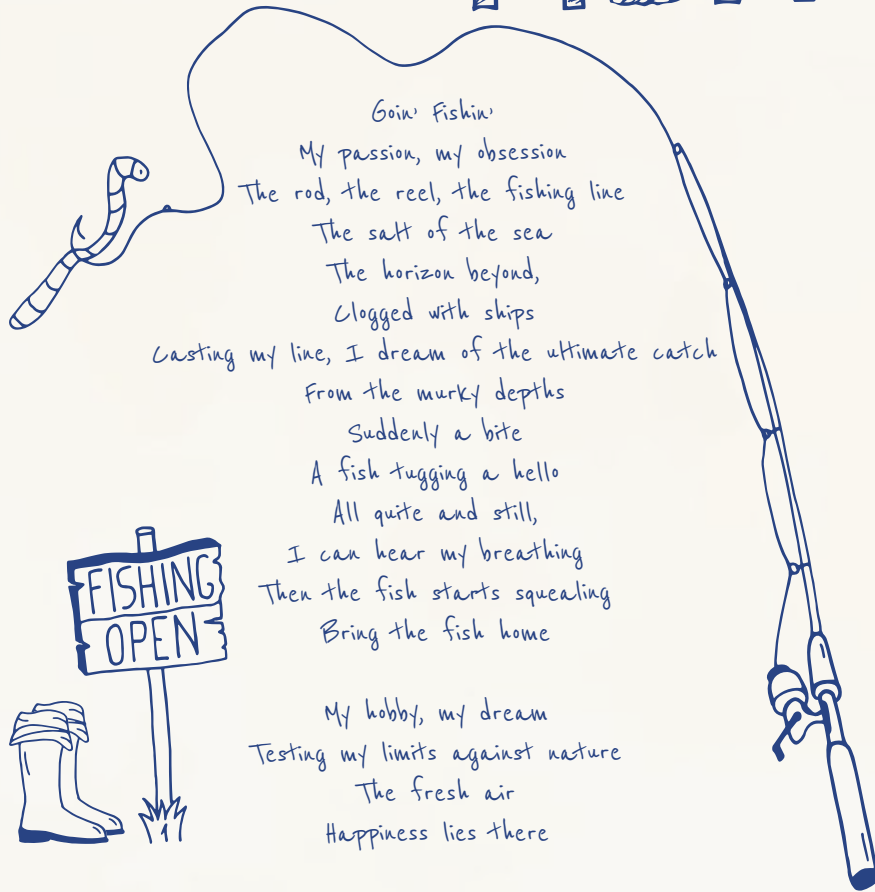 Goin' Fishin'
My passion, my obsession
The rod, the reel, the fishing line
The salt of the sea
The horizon beyond,
Clogged with ships
Casting my line, I dream of the ultimate catch
From the murky depths
Suddenly a bite
A fish tugging a hello
All quite and still,
I can hear my breathing
Then the fish starts squealing
Bring the fish home
My hobby, my dream
Testing my limits against nature
The fresh air
Happiness lies there
FISHING
OPEN